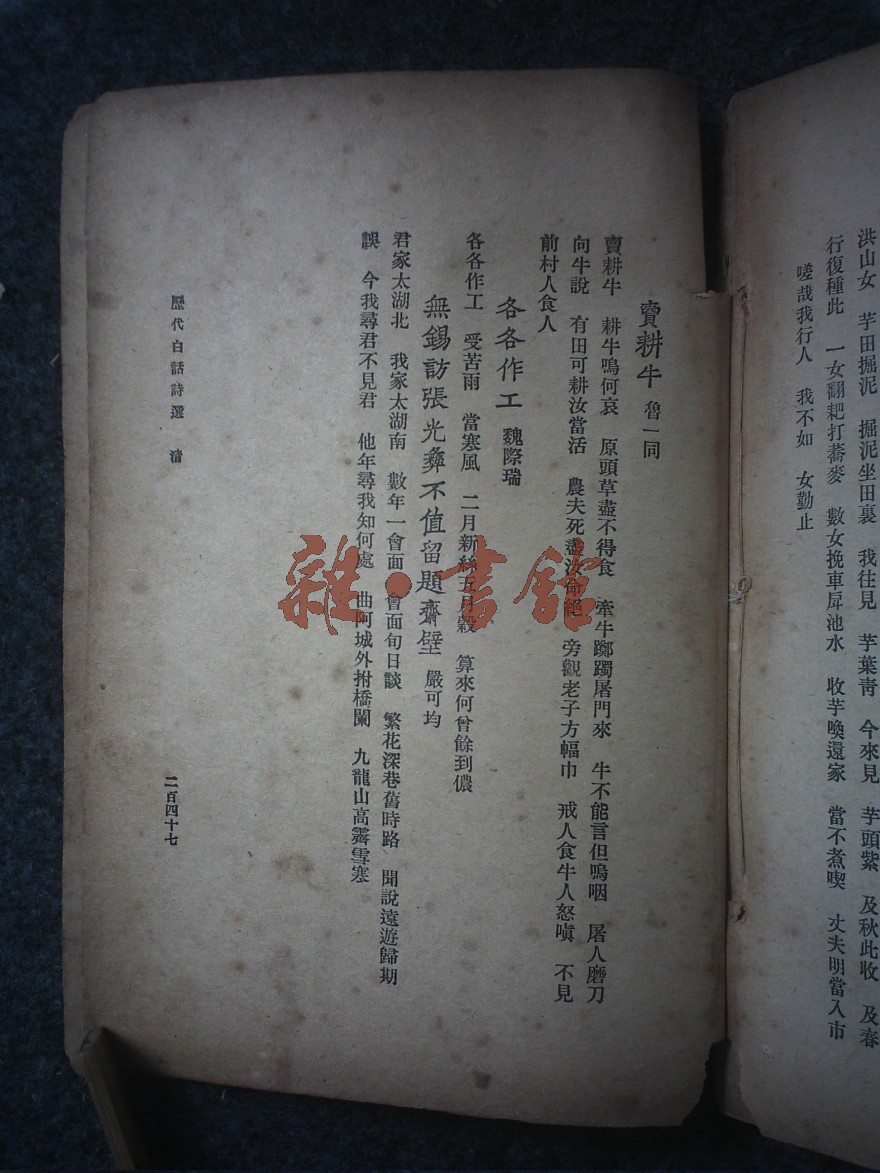 洪山女　芋田掘泥　掘泥坐田裏　我往見　芋葉靑　今來見　芋頭紫　及秋此收　及春
行復種此　一女翻耙打蕎麥　數女挽車戽池水　收芋喚還家　當不煮喫　丈夫明當入市
嗟哉我行人　我不如　女勤止
賣耕牛　魯一同
賣耕牛　耕牛鳴何哀　原頭草盡不得食　牽牛躑躅屠門來　牛不能言但嗚咽　屠人磨刀
向牛說　有田可耕汝當活　農夫死盡汝命絕　旁觀老子方幅巾　戒人食牛人怒嗔　不見
前村人食人
各各作工　魏際瑞
各各作工　受苦雨　當寒風　二月新絲五月穀　算來何曾餘到儂
無錫訪張光彝不值留題齋壁　嚴可均
君家太湖北　我家太湖南　數年一會面　會面旬日談　繁花深巷舊時路　聞說遠遊歸期
誤　今我尋君不見君　他年尋我知何處　曲阿城外拊橋闌　九龍山高霽雪寒
歷代白話詩選　淸
二百四十七
雜·書館